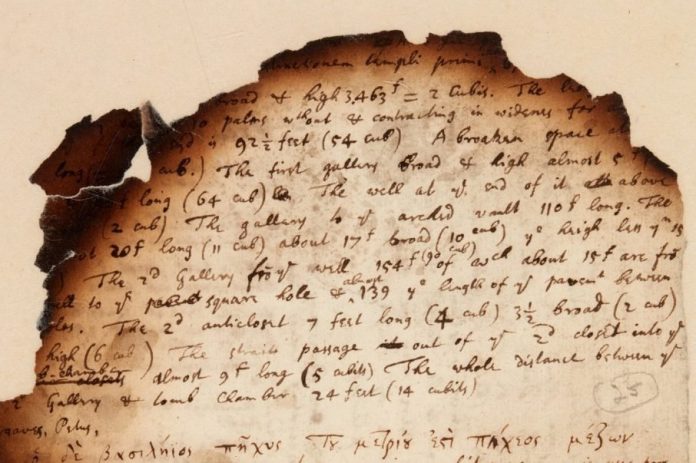 templi primi
broad & high 3,463f = 2 cubits. The
palms wthout & contracting in widenes for
is 92½ feet (54 cub) A broaken space at
long cub.) The first gallery broad & high almost 5f
long (64 cub) The well at ye end of it above
(2 cub) The gallery to ye arched vault 110f long. The
20f long (11 cub) about 17f broad (10 cub) ye heigh less yn 15
) The 2d Gallery frō ye well 154f (90 cub) of wch about 15f are frō
to ye square hole & almost 139 ye length of ye pavemt between
The 2d anticloset 7 feet long (4 cub) 3½ broad (2 cub)
high (6 cub) The strait passage out of ye 2d closet into ye
closets almost 9f long (5 cubits) The whole distance between ye
2 Gallery & tomb Chamber 24 feet (14 cubits)
25
eaves, Petus,
δὲ βασιλήϊος πῆχυς τοῦ μετρίου ἐστὶ πήχεος μέζων